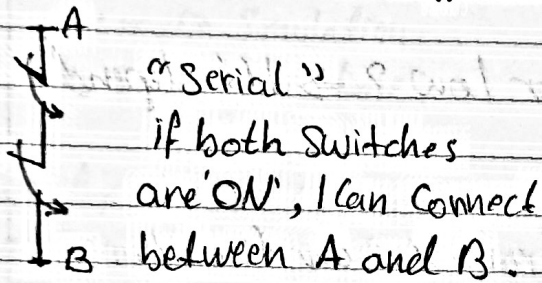 A
"Serial"
if both switches
are 'ON', I can Connect
B between A and B.